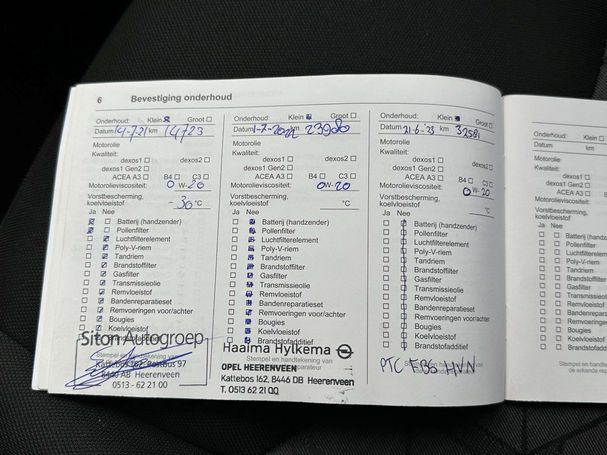 6 Bevestiging onderhoud
Onderhoud: Klein Groot
Datum 14-7-21 km 14723
Motorolie
Kwaliteit:
dexos1 dexos2
dexos1 Gen2
ACEA A3 B4 C3
Motorolieviscositeit: 0 W-20
Vorstbescherming,
koelvloeistof - 36 °C
Ja Nee
Batterij (handzender)
Pollenfilter
Luchtfilterelement
Poly-V-riem
Tandriem
Brandstoffilter
Gasfilter
Transmissieolie
Remvloeistof
Bandenreparatieset
Remvoeringen voor/achter
Bougies
Koelvloeistof
Siton Autogroep
Stempel en handtekening van
Kattebos 162, Postbus 97
8440 AB Heerenveen
0513 - 62 21 00
Onderhoud: Klein Groot
Datum 1-7-2022 km
Motorolie
Kwaliteit:
dexos1 dexos2
dexos1 Gen2
ACEA A3 B4 C3
Motorolieviscositeit: 0W-20
Vorstbescherming,
koelvloeistof - °C
Ja Nee
Batterij (handzender)
Pollenfilter
Luchtfilterelement
Poly-V-riem
Tandriem
Brandstoffilter
Gasfilter
Transmissieolie
Remvloeistof
Bandenreparatieset
Remvoeringen voor/achter
Bougies
Koelvloeistof
Brandstofadditief
Haaima Hylkema
Stempel en handtekening van
OPEL HEERENVEEN
Kattebos 162, 8446 DB Heerenveen
T. 0513 62 21 00
Onderhoud: Klein Groot
Datum 21-6-'23 km 32581
Motorolie
Kwaliteit:
dexos1 dexos2
dexos1 Gen2
ACEA A3 B4 C3
Motorolieviscositeit: 0 W-20
Vorstbescherming,
koelvloeistof - °C
Ja Nee
Batterij (handzender)
Pollenfilter
Luchtfilterelement
Poly-V-riem
Tandriem
Brandstoffilter
Gasfilter
Transmissieolie
Remvloeistof
Bandenreparatieset
Remvoeringen voor/achter
Bougies
Koelvloeistof
Brandstofadditief
PTC HVN
Onderhoud: Klein
Datum km
Motorolie
Kwaliteit:
dexos1
dexos1 Gen2
ACEA A3
Motorolieviscositeit:
Vorstbescherming,
koelvloeistof
Ja Nee
Batterij
Pollenfilter
Luchtfilterelement
Poly-V-riem
Tandriem
Brandstoffilter
Gasfilter
Transmissieolie
Remvloeistof
Bandenreparatieset
Remvoeringen
Bougies
Koelvloeistof
Brandstofadditief
Stempel en handtekening